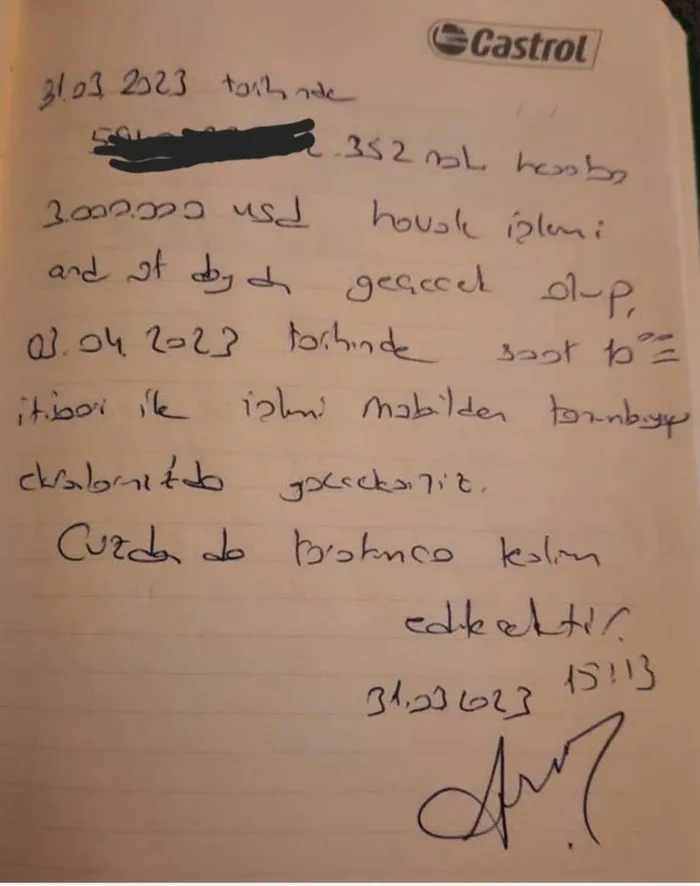 Castrol
31.03.2023 tarihinde
352 nolu hesaba
3.000.000 usd havale işlemi
geçecek olup,
03.04.2023 tarihinde saat 10⁰⁰
itibari ile işlemi mobilden
ekranlarınızda göreceksiniz.
Cüzdan da
edilecektir.
31.03.2023 15:13